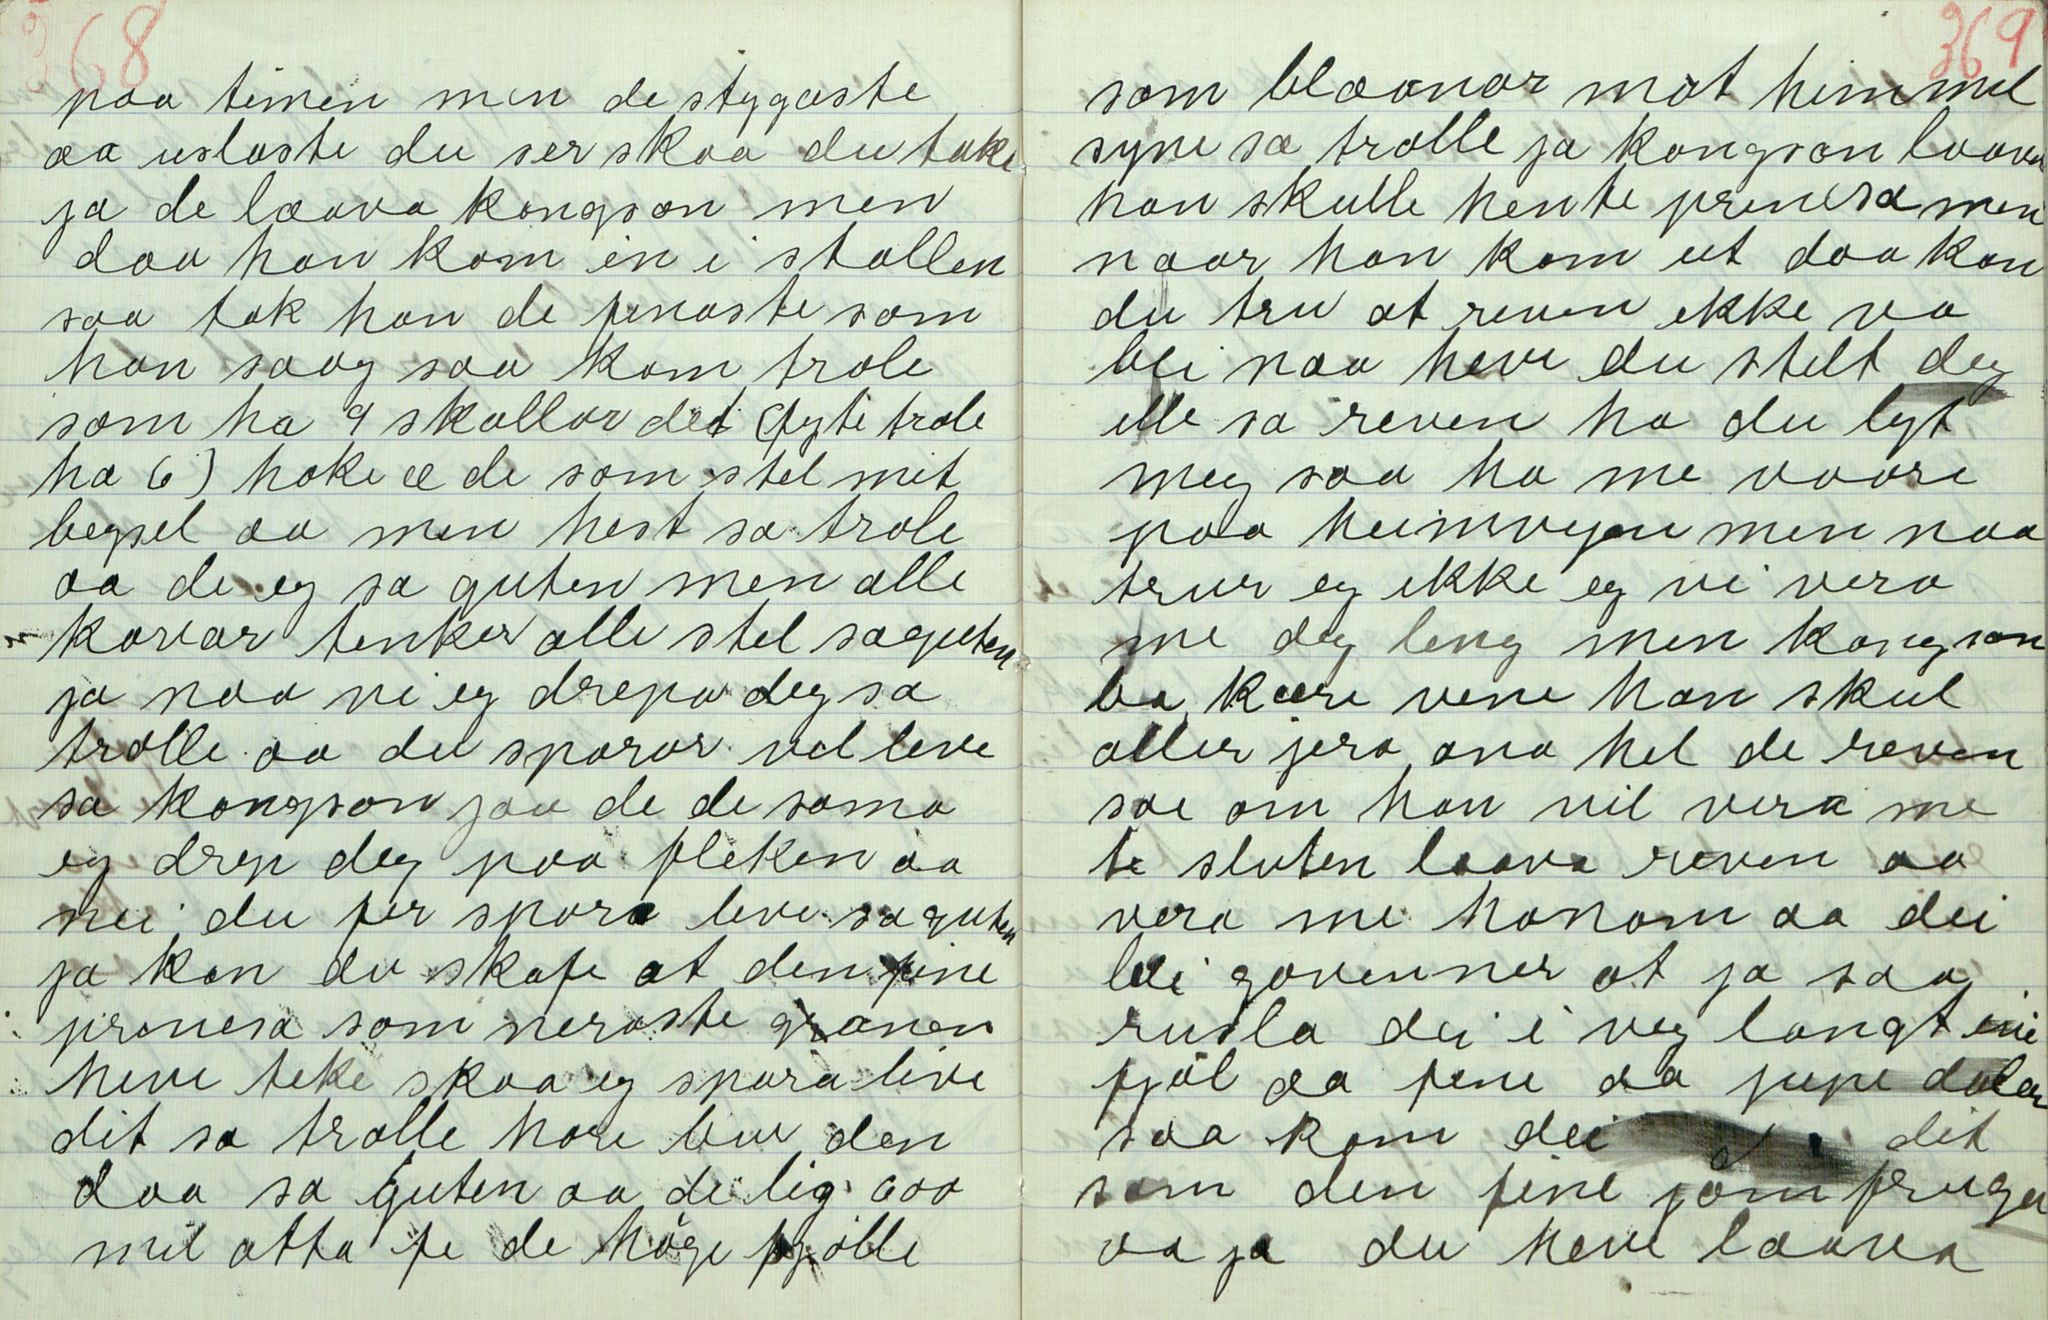 368
paa timen men de stygaste
aa uslaste du ser skaa du take
ja de laava kongson men
daa han kom in i stallen
saa tok han de finaste som
han saag saa kom trole
som ha 9 skallar det (fyte trole
ha 6) hoke æ de som stel mit
beysel aa min hest sa trole
aa de eg sa guten men alle
karar tenker alle stel sa guten
ja naa vi eg drepa deg sa
trolle aa du sparar vel live
sa kongson jaa de de sama
eg drep deg paa fleken aa
nei du fer spara live sa guten
ja kan du skafe at den fine
prinsesa som neraste granen
heve teke skaa eg spara live
dit sa trolle hore bur den
daa sa guten aa de lig 600
mil atta fe de høge fjølle
369
som blaanar mot himmel
syne sa trolle ja kongson laava
han skulle hente prinsesa men
naar han kom ut daa kan
du tru at reven ikke va
bli naa heve du stelt deg
ille sa reven ha du lyt
meg saa ha me vaare
paa heimvejen men naa
trur eg ikke eg vi vera
me deg leng men kongson
ba kære vene han skul
aller jera ana hel de reven
sae om han vil vera me
te sluten laava reven aa
vera me honom aa dei
blei govenner at ja saa
rusla dei i veg langt
fjøl aa fine aa jupe dalar
saa kom dei dit
som den fine jomfruga
va ja du heve laava